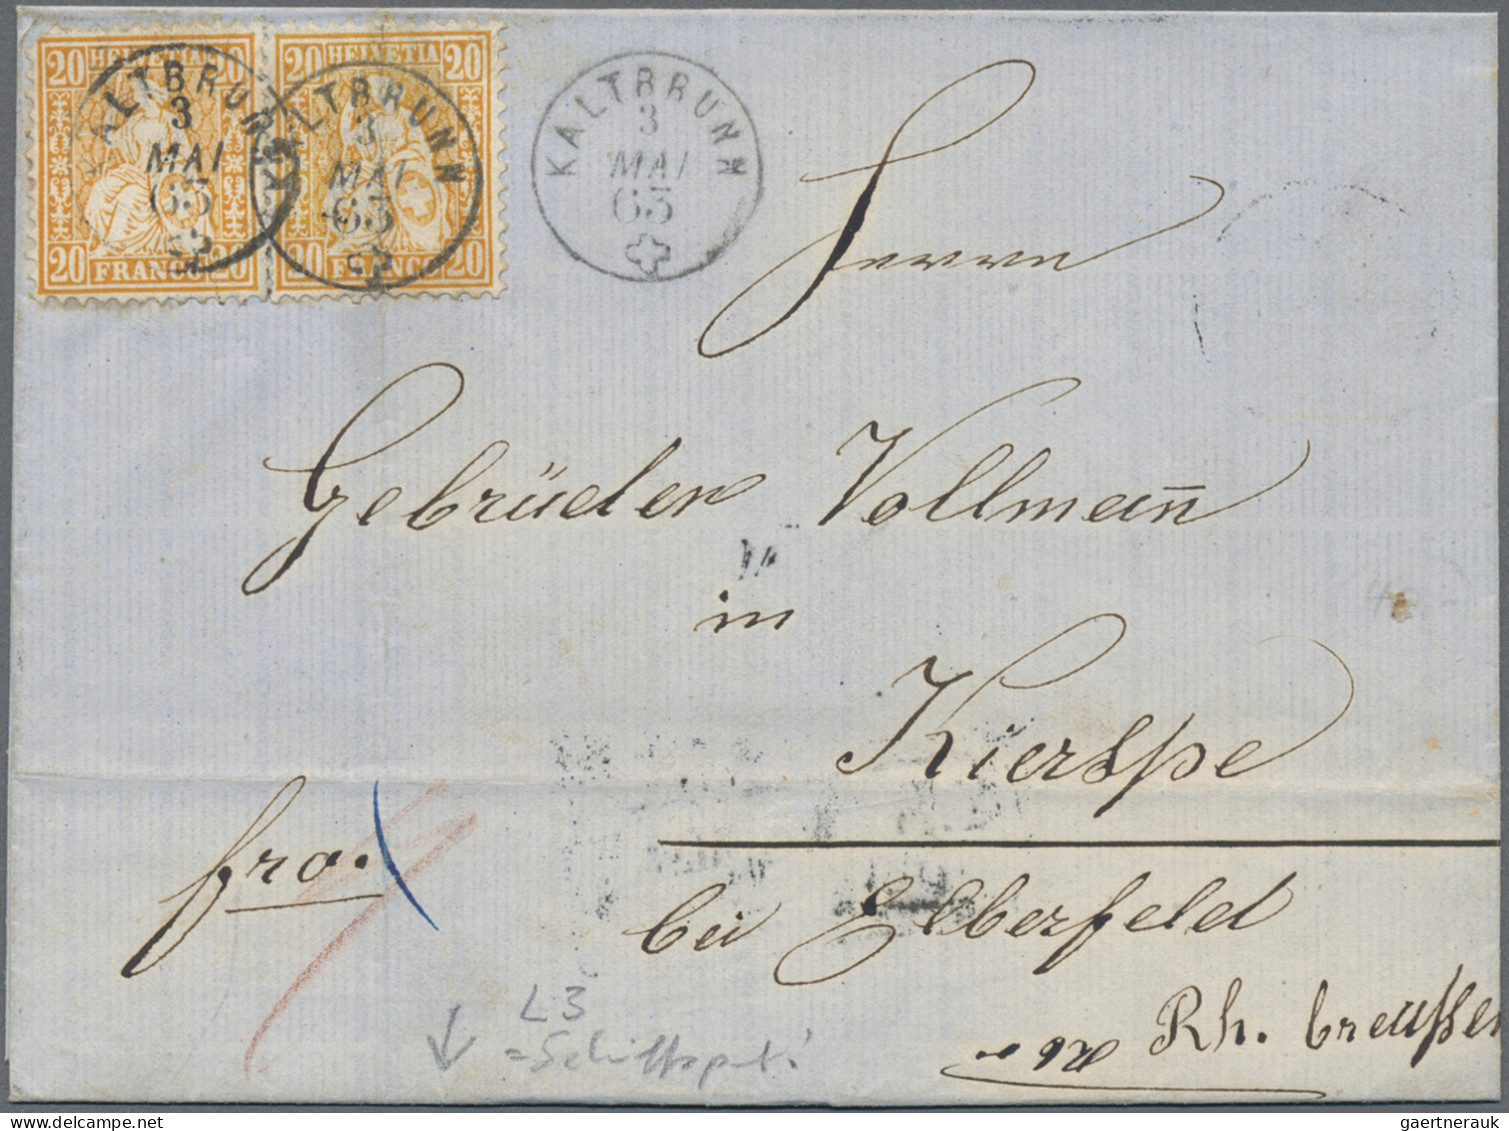 20 HELVETIA 20
20 HELVETIA 20
KALTBRUNN
3
MAI
63
KALTBRUNN
3
MAI
63
KALTBRUNN
3
MAI
63
20 FRANCO 20
20 FRANCO 20
Herrn
Gebrüder Vollmann̄
in
Kierspe
fro.
bei Elberfeld
Rh. Preußen
L3
=Schiffspost!
gaertnerauk @ delcampe.net